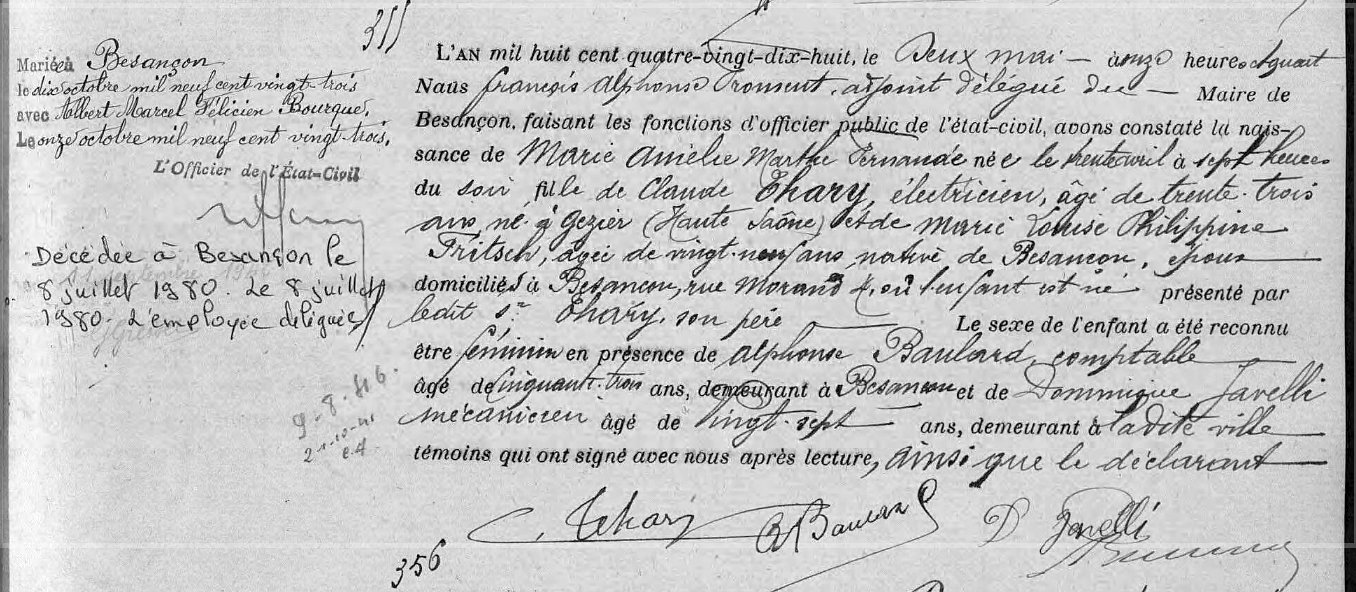 355
Mariée à Besançon
le dix octobre mil neuf cent vingt-trois
avec Albert Marcel Félicien Bourque.
Le onze octobre mil neuf cent vingt-trois.
L'Officier de l'État-Civil
Décédée à Besançon le
8 juillet 1980. Le 8 juillet
1980. L'employée déléguée
9-8-46.
L'AN mil huit cent quatre-vingt-dix-huit, le Deux mai — à onze heures et quart
Nous François Alphonse Froment, adjoint délégué du — Maire de
Besançon, faisant les fonctions d'officier public de l'état-civil, avons constaté la nais-
sance de Marie Amélie Marthe Fernande née le trente avril à sept heures
du soir fille de Claude Thary, électricien, âgé de trente-trois
ans, né à Gezier (Haute Saône) et de Marie Louise Philippine
Fritsch, âgée de vingt-neuf ans, native de Besançon, époux
domiciliés à Besançon, rue Morand 4, où l'enfant est né présenté par
ledit sr Thary, son père — Le sexe de l'enfant a été reconnu
être féminin en présence de Alphonse Baulard, comptable
âgé de cinquante-trois ans, demeurant à Besancon et de Dominique Javelli
mécanicien âgé de vingt-sept — ans, demeurant à ladite ville
témoins qui ont signé avec nous après lecture, ainsi que le déclarant —
C. Thary A Baulard D Javelli
356